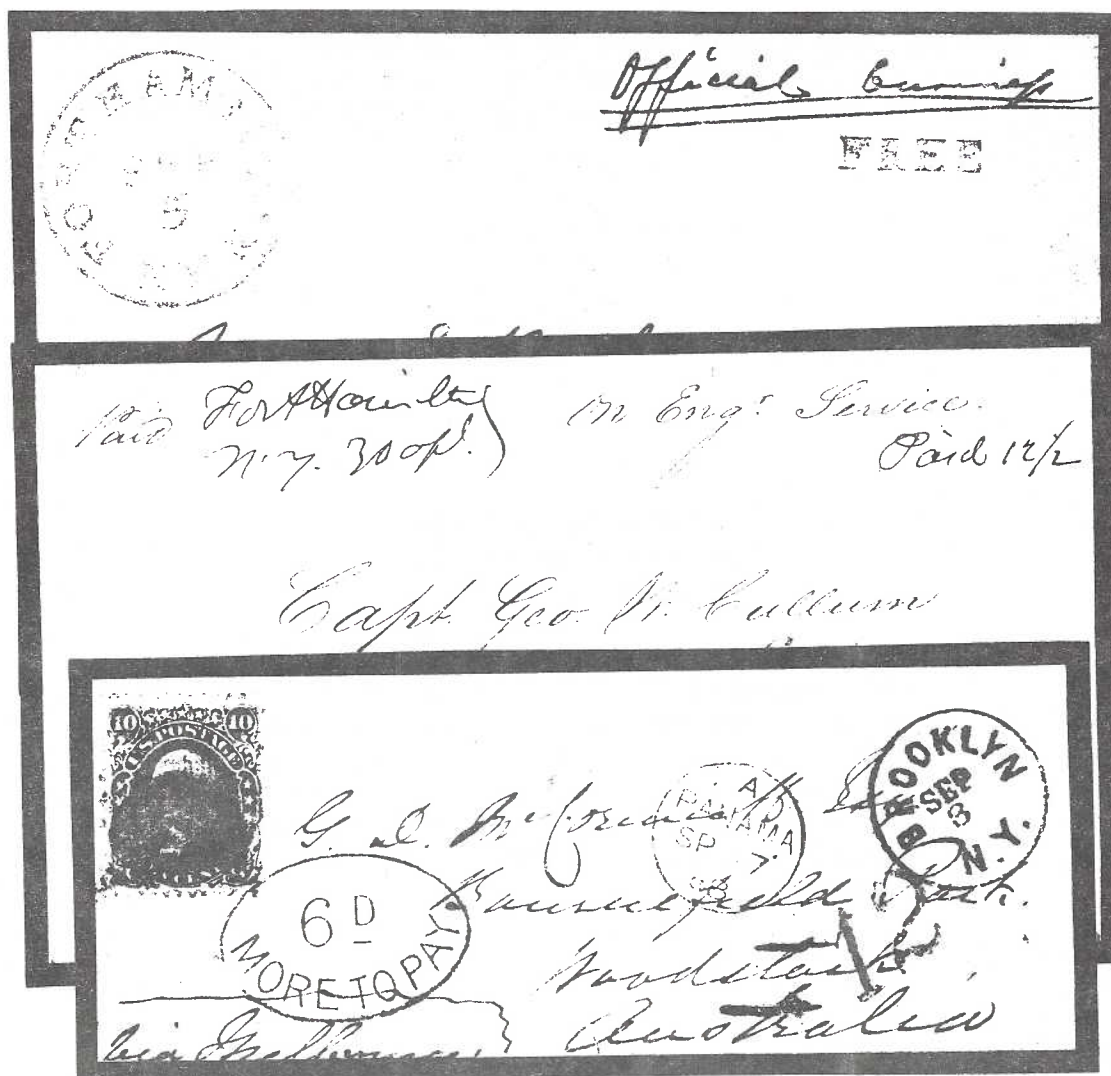 Official Business
FREE
5
N.Y.
Paid Fort Hamilton
N.Y. 30
On Engr Service.
Paid 12/2
Capt. Geo. W. Cullum
10 10
U.S. POSTAGE
BROOKLYN N.Y.
SEP
3
PANAMA
SP 7
G. D. McCormick
6D
MORE TO PAY
Park.
Woodstock
Australia
via Melbourne